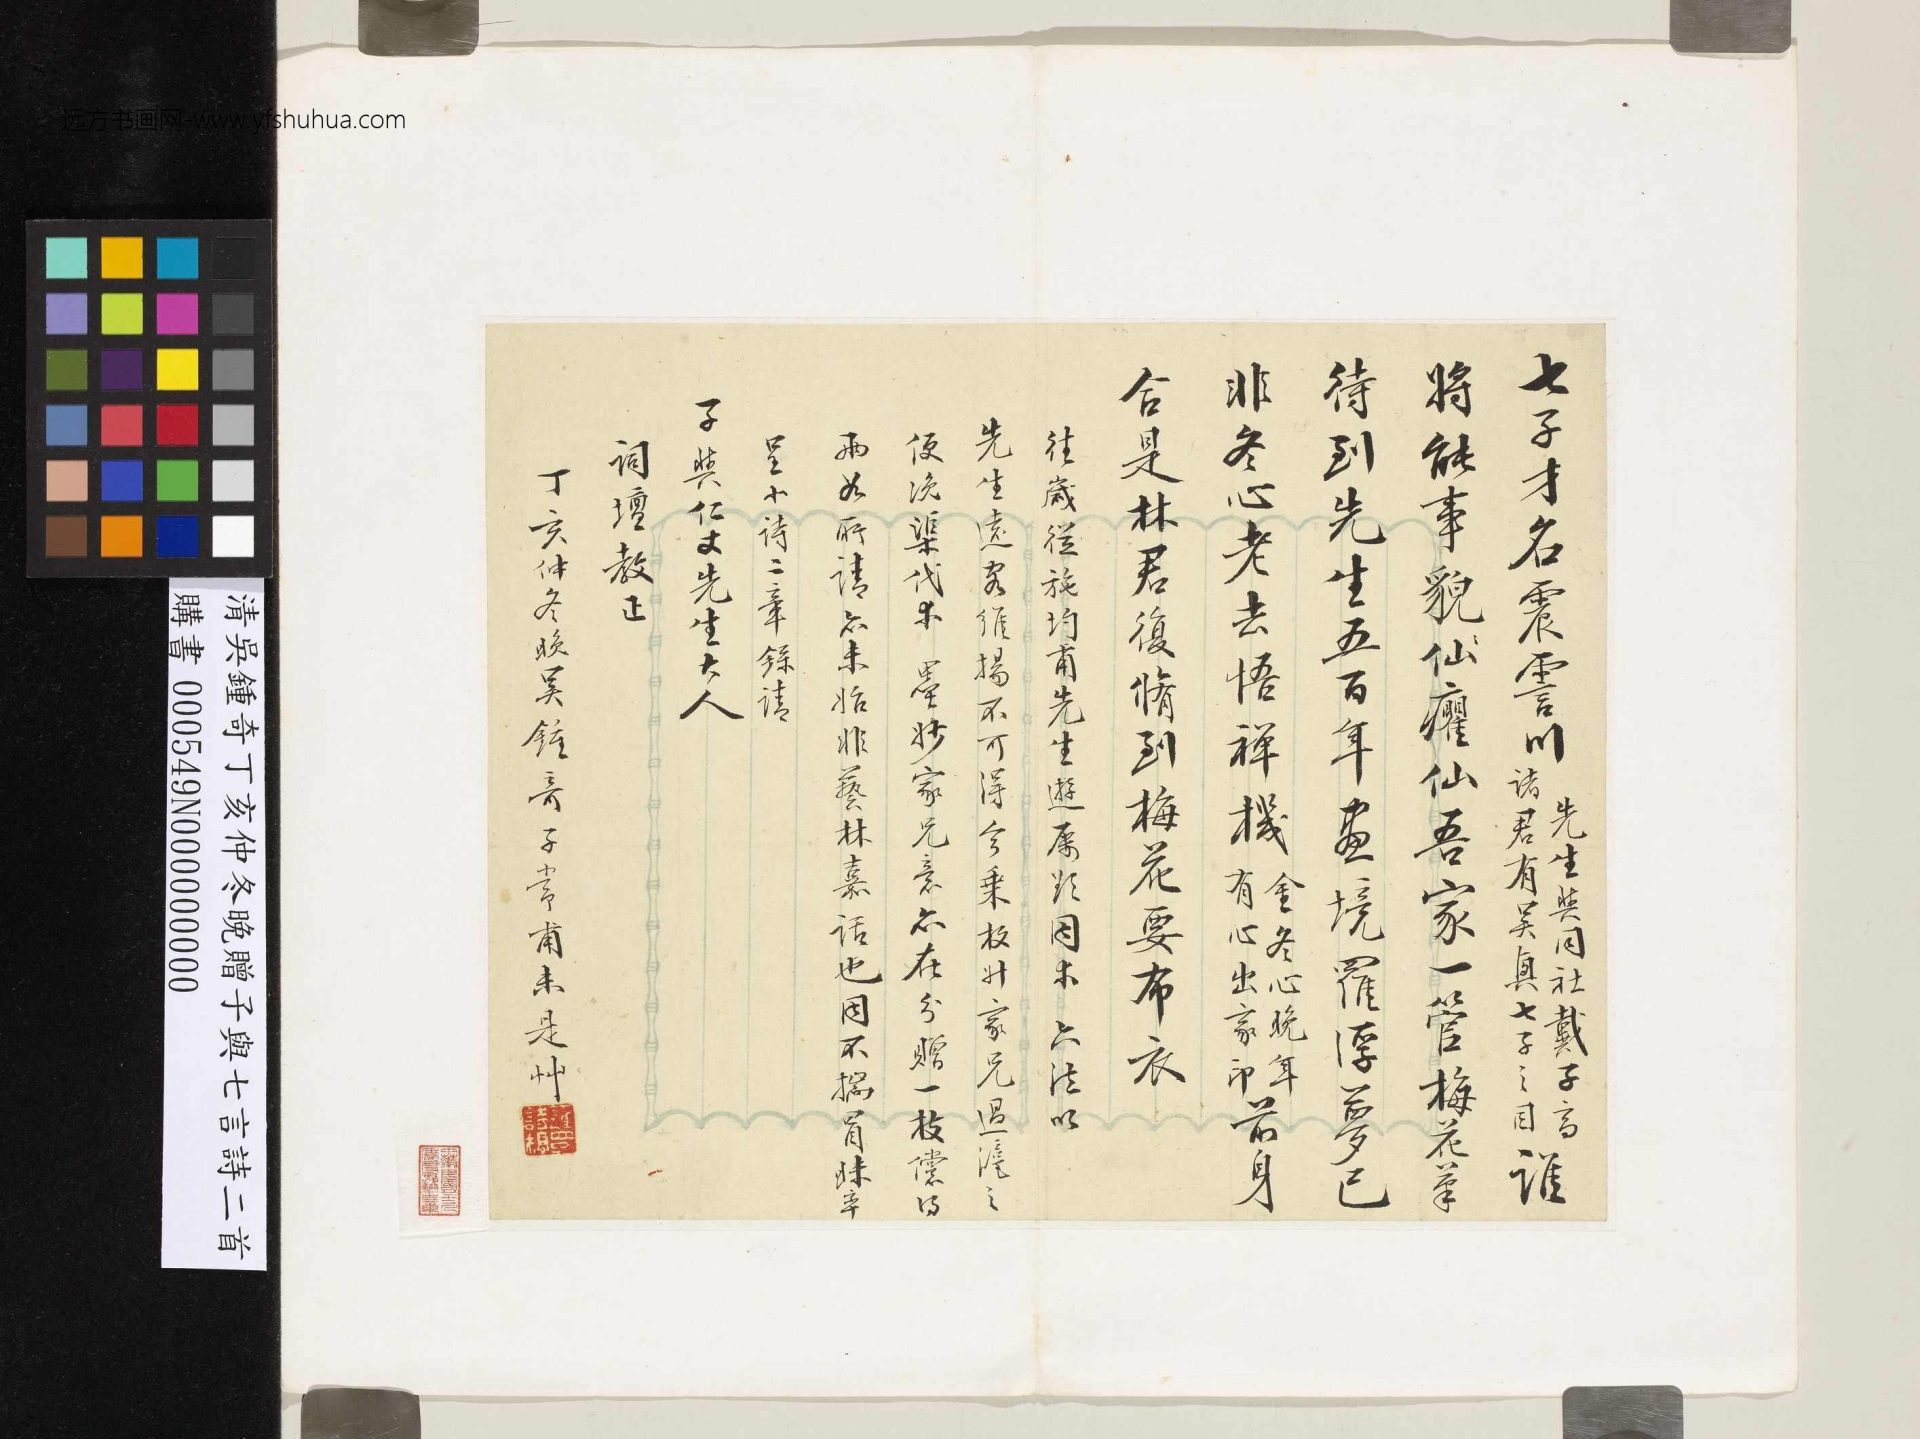 远方书画网-www.yfshuhua.com
七子才名震霅川
先生與同社戴子高
諸君有吳興七子之目
誰
將能事貌仙癯仙吾家一管梅花筆
待到先生五百年畫境羅浮夢已
非冬心老去悟禪機
金冬心晚年
有心出家印
前身
合是林君復脩到梅花要布衣
往歲從施均甫先生遊屬
因
六法以
先生遠客維揚不可得今乘
家兄過滬之
便
渠代求 墨妙家兄意亦在分贈一枝儻得
兩如所請亦未始非藝林嘉話也因不揣冒昧率
呈小詩二章錄請
子與仁丈先生大人
詞壇教正
丁亥仲冬晚吳鍾奇子常甫未是艸
清吳鍾奇丁亥仲冬晚贈子與七言詩二首
購書 000549N000000000